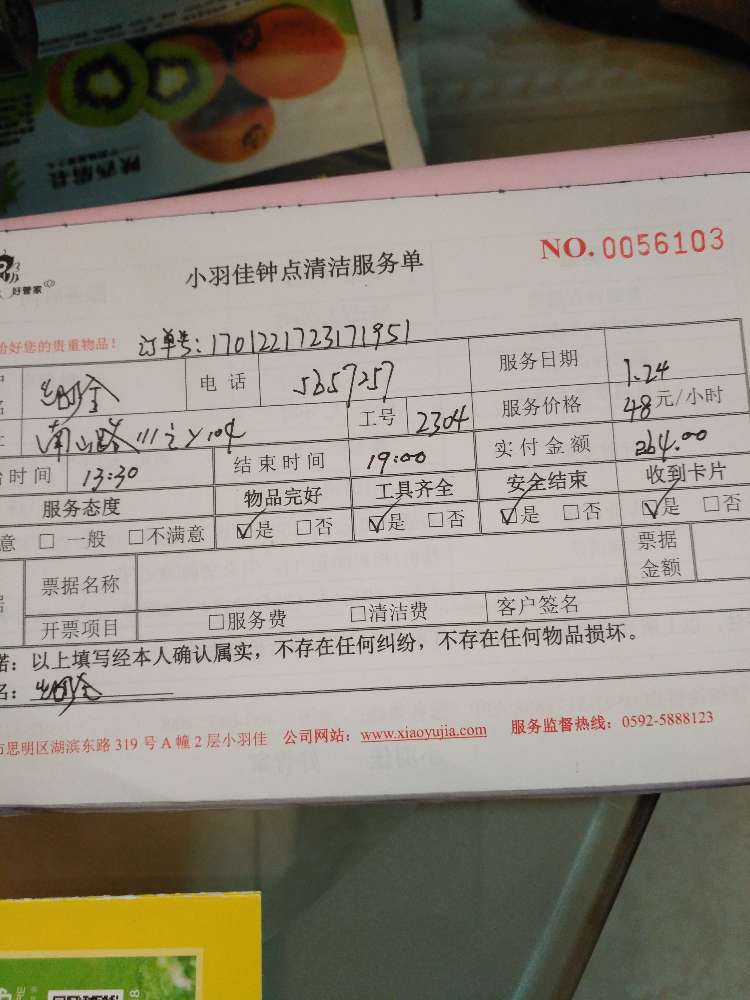 陕西眉县
好管家
小羽佳钟点清洁服务单
NO. 0056103
恰好您的贵重物品! 订单号:1701221723171951
名 电话 5657257 服务日期 1.24
南山路111之 工号 2304 服务价格 48元/小时
时间 13:30 结束时间 19:00 实付金额 264.00
服务态度 物品完好 工具齐全 安全结束 收到卡片
意 □ 一般 □不满意 ☑是 □否 ☑是 □否 ☑是 □否 ☑是 □否
票据名称 票据金额
开票项目 □服务费 □清洁费 客户签名
诺:以上填写经本人确认属实,不存在任何纠纷,不存在任何物品损坏。
名:
市思明区湖滨东路 319 号 A 幢 2 层小羽佳 公司网站:www.xiaoyujia.com 服务监督热线:0592-5888123